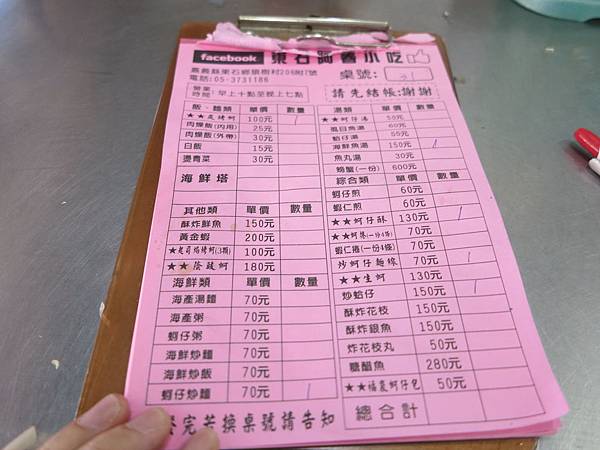 facebook 東石阿春小吃
嘉義縣東石鄉猿樹村206附7號
電話:05-3731186
桌號: 21
營業時間: 早上十點至晚上七點
請先結帳:謝謝
飯、麵類 單價 數量
100元 1
肉燥飯(內用) 25元
肉燥飯(外帶) 30元
白飯 15元
燙青菜 30元
海鮮塔
其他類 單價 數量
酥炸鮮魚 150元
黃金蝦 200元
100元
★★陰豉蚵 180元
海鮮類 單價 數量
海產湯麵 70元
海產粥 70元
蚵仔粥 70元
海鮮炒麵 70元
海鮮炒飯 70元
蚵仔炒麵 70元 1
湯類 單價 數量
★★蚵仔湯 50元
虱目魚湯 60元
蛤仔湯 50元
海鮮魚湯 150元 1
魚丸湯 30元
螃蟹(一份) 600元
綜合類 單價 數量
蚵仔煎 60元
蝦仁煎 60元
★★蚵仔酥 130元 1
★★蚵捲(一份4條) 70元
蝦仁捲(一份4條) 70元
炒蚵仔麵線 70元 1
★★生蚵 130元
炒蛤仔 150元 1
酥炸花枝 150元
酥炸銀魚 150元
炸花枝丸 50元
糖醋魚 280元
★★福袋蚵仔包 50元
總合計
用餐完若換桌號請告知